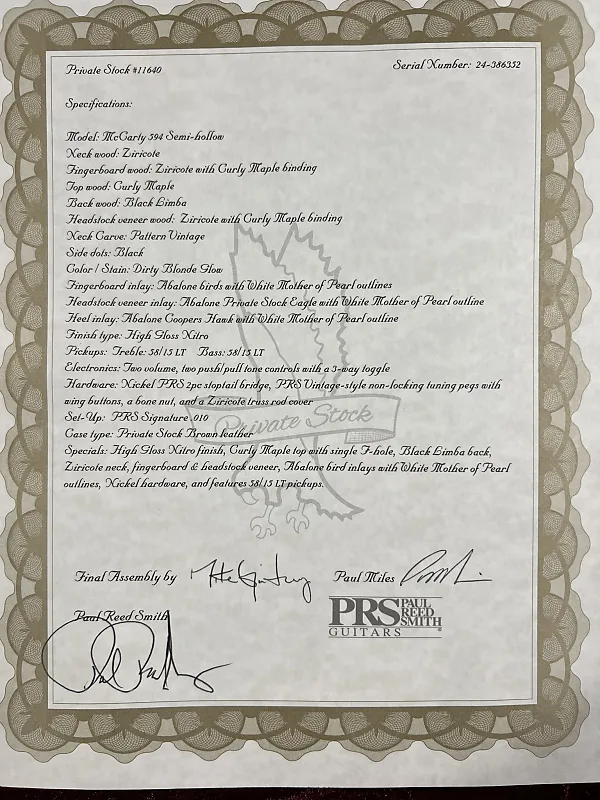 Private Stock #11640
Serial Number: 24-386352
Specifications:
Model: McCarty 594 Semi-hollow
Neck wood: Ziricote
Fingerboard wood: Ziricote with Curly Maple binding
Top wood: Curly Maple
Back wood: Black Limba
Headstock veneer wood: Ziricote with Curly Maple binding
Neck Carve: Pattern Vintage
Side dots: Black
Color / Stain: Dirty Blonde Glow
Fingerboard inlay: Abalone birds with White Mother of Pearl outlines
Headstock veneer inlay: Abalone Private Stock Eagle with White Mother of Pearl outline
Heel inlay: Abalone Coopers Hawk with White Mother of Pearl outline
Finish type: High Gloss Nitro
Pickups: Treble: 58/15 LT Bass: 58/15 LT
Electronics: Two volume, two push/pull tone controls with a 3-way toggle
Hardware: Nickel PRS 2pc stoptail bridge, PRS Vintage-style non-locking tuning pegs with
wing buttons, a bone nut, and a Ziricote truss rod cover
Set-Up: PRS Signature .010
Private Stock
Case type: Private Stock Brown leather
Specials: High Gloss Nitro finish, Curly Maple top with single F-hole, Black Limba back,
Ziricote neck, fingerboard & headstock veneer, Abalone bird inlays with White Mother of Pearl
outlines, Nickel hardware, and features 58/15 LT pickups.
Final Assembly by
Paul Miles
Paul Reed Smith
PRS PAUL REED SMITH
GUITARS ®